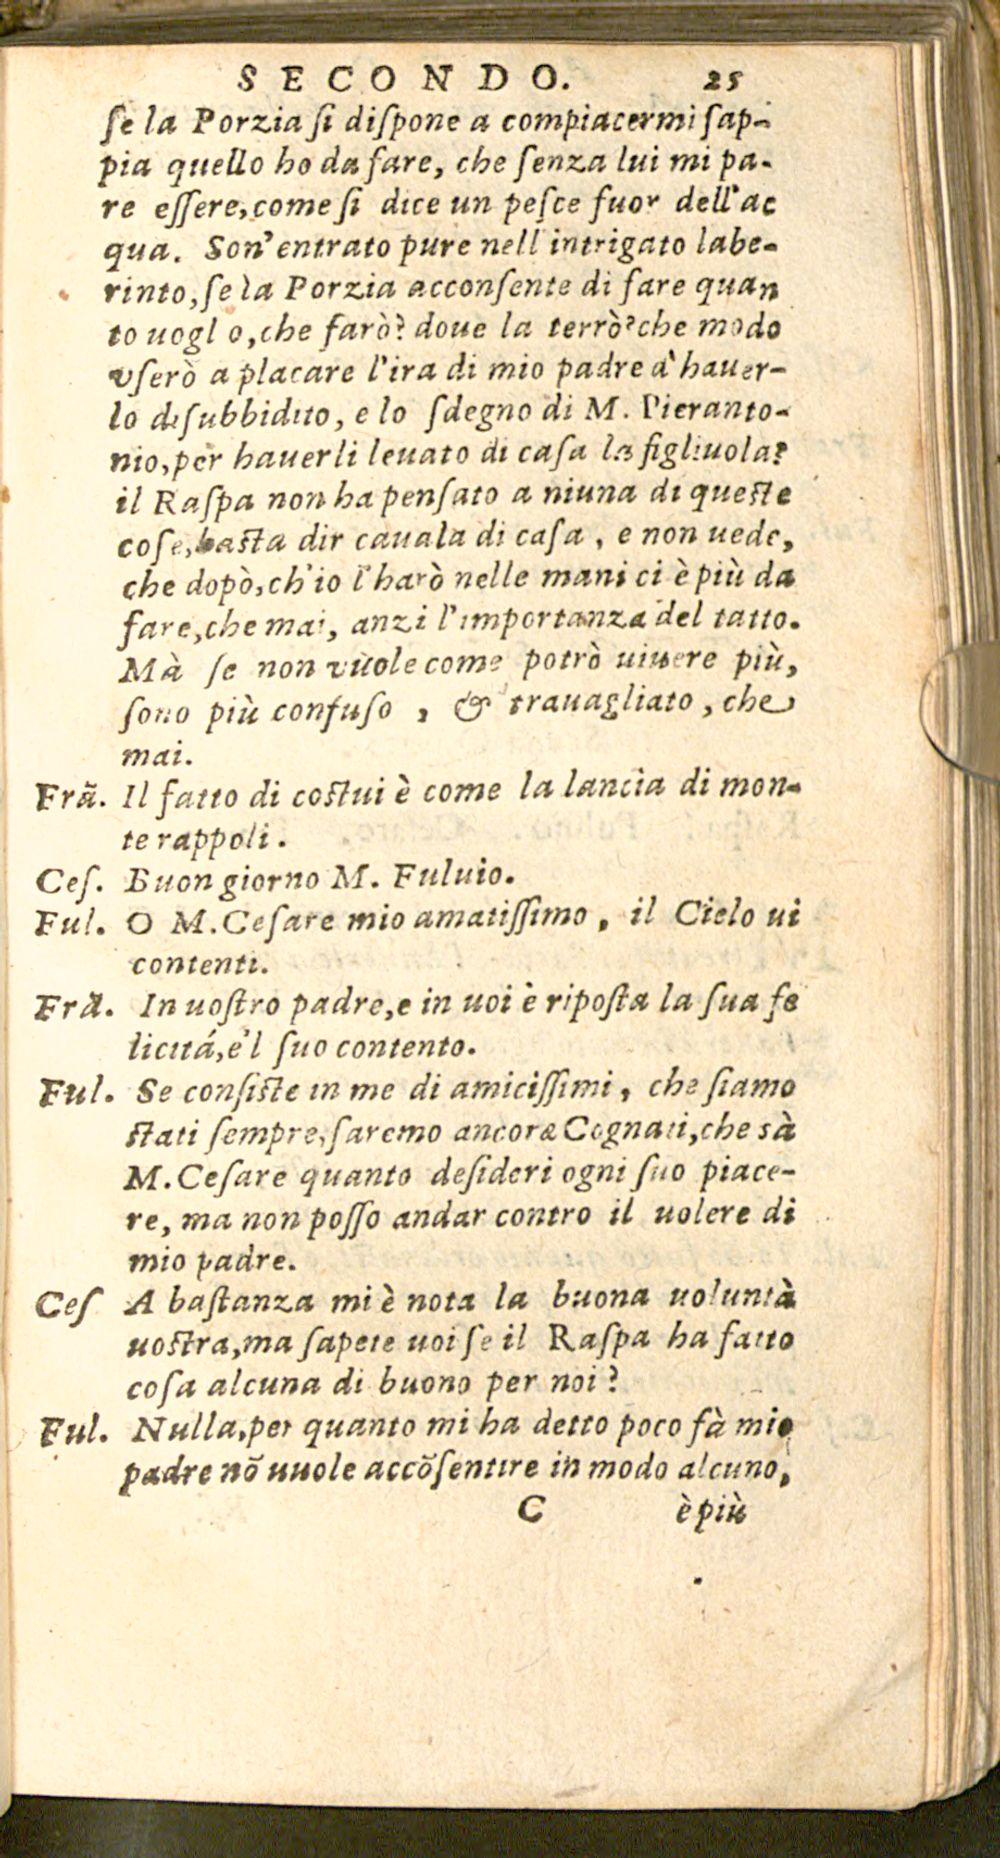 SECONDO. 25
ſe la Porzia ſi diſpone a compiacermi ſap-
pia quello ho da fare, che ſenza lui mi pa-
re eſſere, come ſi dice un peſce fuor dell'ac
qua. Son' entrato pure nell intrigato labe-
rinto, ſe la Porzia acconſente di fare quan
to uogl o, che farò? doue la terrò? che modo
vſerò a placare l'ira di mio padre d' hauer-
lo diſubbidito, e lo ſdegno di M. Pieranto-
nio, per hauerli leuato di caſa la figliuola?
il Raſpa non ha penſato a niuna di queſte
coſe, baſta dir cauala di caſa, e non uede,
che dopò, ch'io l'harò nelle mani ci è più da
fare, che mai, anzi l'importanza del tatto.
Mà ſe non vuole come potrò uiuere più,
ſono più confuſo, & trauagliato, che
mai.
Frã. Il fatto di coſtui è come la lancia di mon-
te rappoli.
Ceſ. Buon giorno M. Fuluio.
Ful. O M. Ceſare mio amatiſſimo, il Cielo ui
contenti.
Frã. In uoſtro padre, e in uoi è ripoſta la ſua fe
licitá, e'l ſuo contento.
Ful. Se conſiſte in me di amiciſſimi, che ſiamo
ſtati ſempre, ſaremo ancora Cognati, che sà
M. Ceſare quanto deſideri ogni ſuo piace-
re, ma non poſſo andar contro il uolere di
mio padre.
Ceſ A baſtanza mi è nota la buona uoluntà
uoſtra, ma ſapete uoi ſe il Raſpa ha fatto
coſa alcuna di buono per noi?
Ful. Nulla, per quanto mi ha detto poco fà mio
padre nõ uuole accõſentire in modo alcuno,
C è più